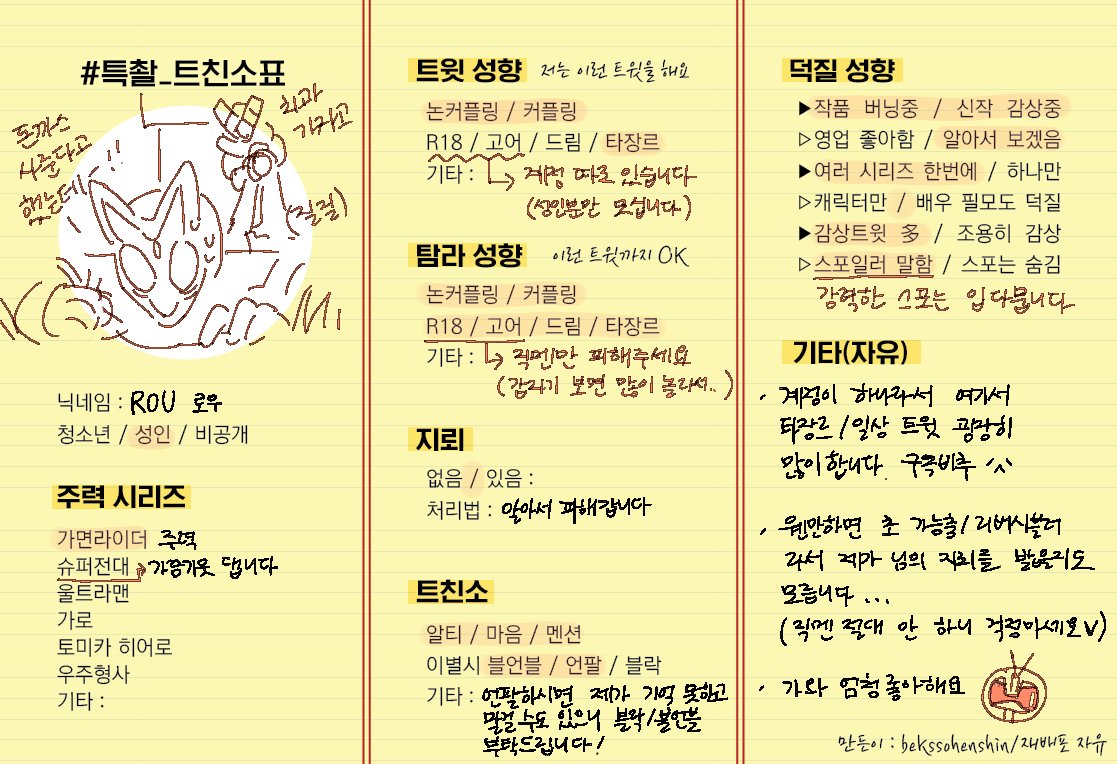 #특촬_트친소표
돈까스
사준다고
했는데!!
치과
가자고
(질질)
닉네임 : ROU 로우
청소년 / 성인 / 비공개
주력 시리즈
가면라이더 주력
슈퍼전대 → 가끔기웃 댑니다
울트라맨
가로
토미카 히어로
우주형사
기타 :
트윗 성향 저는 이런 트윗을 해요
논커플링 / 커플링
R18 / 고어 / 드림 / 타장르
기타 : 계정 따로 있습니다
(성인분만 모십니다)
탐라 성향 이런 트윗까지 OK
논커플링 / 커플링
R18 / 고어 / 드림 / 타장르
기타 : 직멘만 피해주세요
(갑자기 보면 많이 놀라서..)
지뢰
없음 / 있음 :
처리법 : 알아서 피해갑니다
트친소
알티 / 마음 / 멘션
이별시 블언블 / 언팔 / 블락
기타 : 언팔하시면 제가 기억 못하고
말걸 수도 있으니 블락/블언블
부탁드립니다!
덕질 성향
▶작품 버닝중 / 신작 감상중
▷영업 좋아함 / 알아서 보겠음
▶여러 시리즈 한번에 / 하나만
▷캐릭터만 / 배우 필모도 덕질
▶감상트윗 多 / 조용히 감상
▷스포일러 말함 / 스포는 숨김
강력한 스포는 입 다뭅니다
기타(자유)
· 계정이 하나라서 여기서
타장르/일상 트윗 굉장히
많이합니다. 구독비추 ^^
· 웬만하면 초 가능충/리버시블러
라서 제가 님의 지뢰를 밟을지도
모릅니다 ...
(직멘 절대 안 하니 걱정마세요V)
· 가와 엄청 좋아해요
만든이 : bekssohenshin/재배포 자유